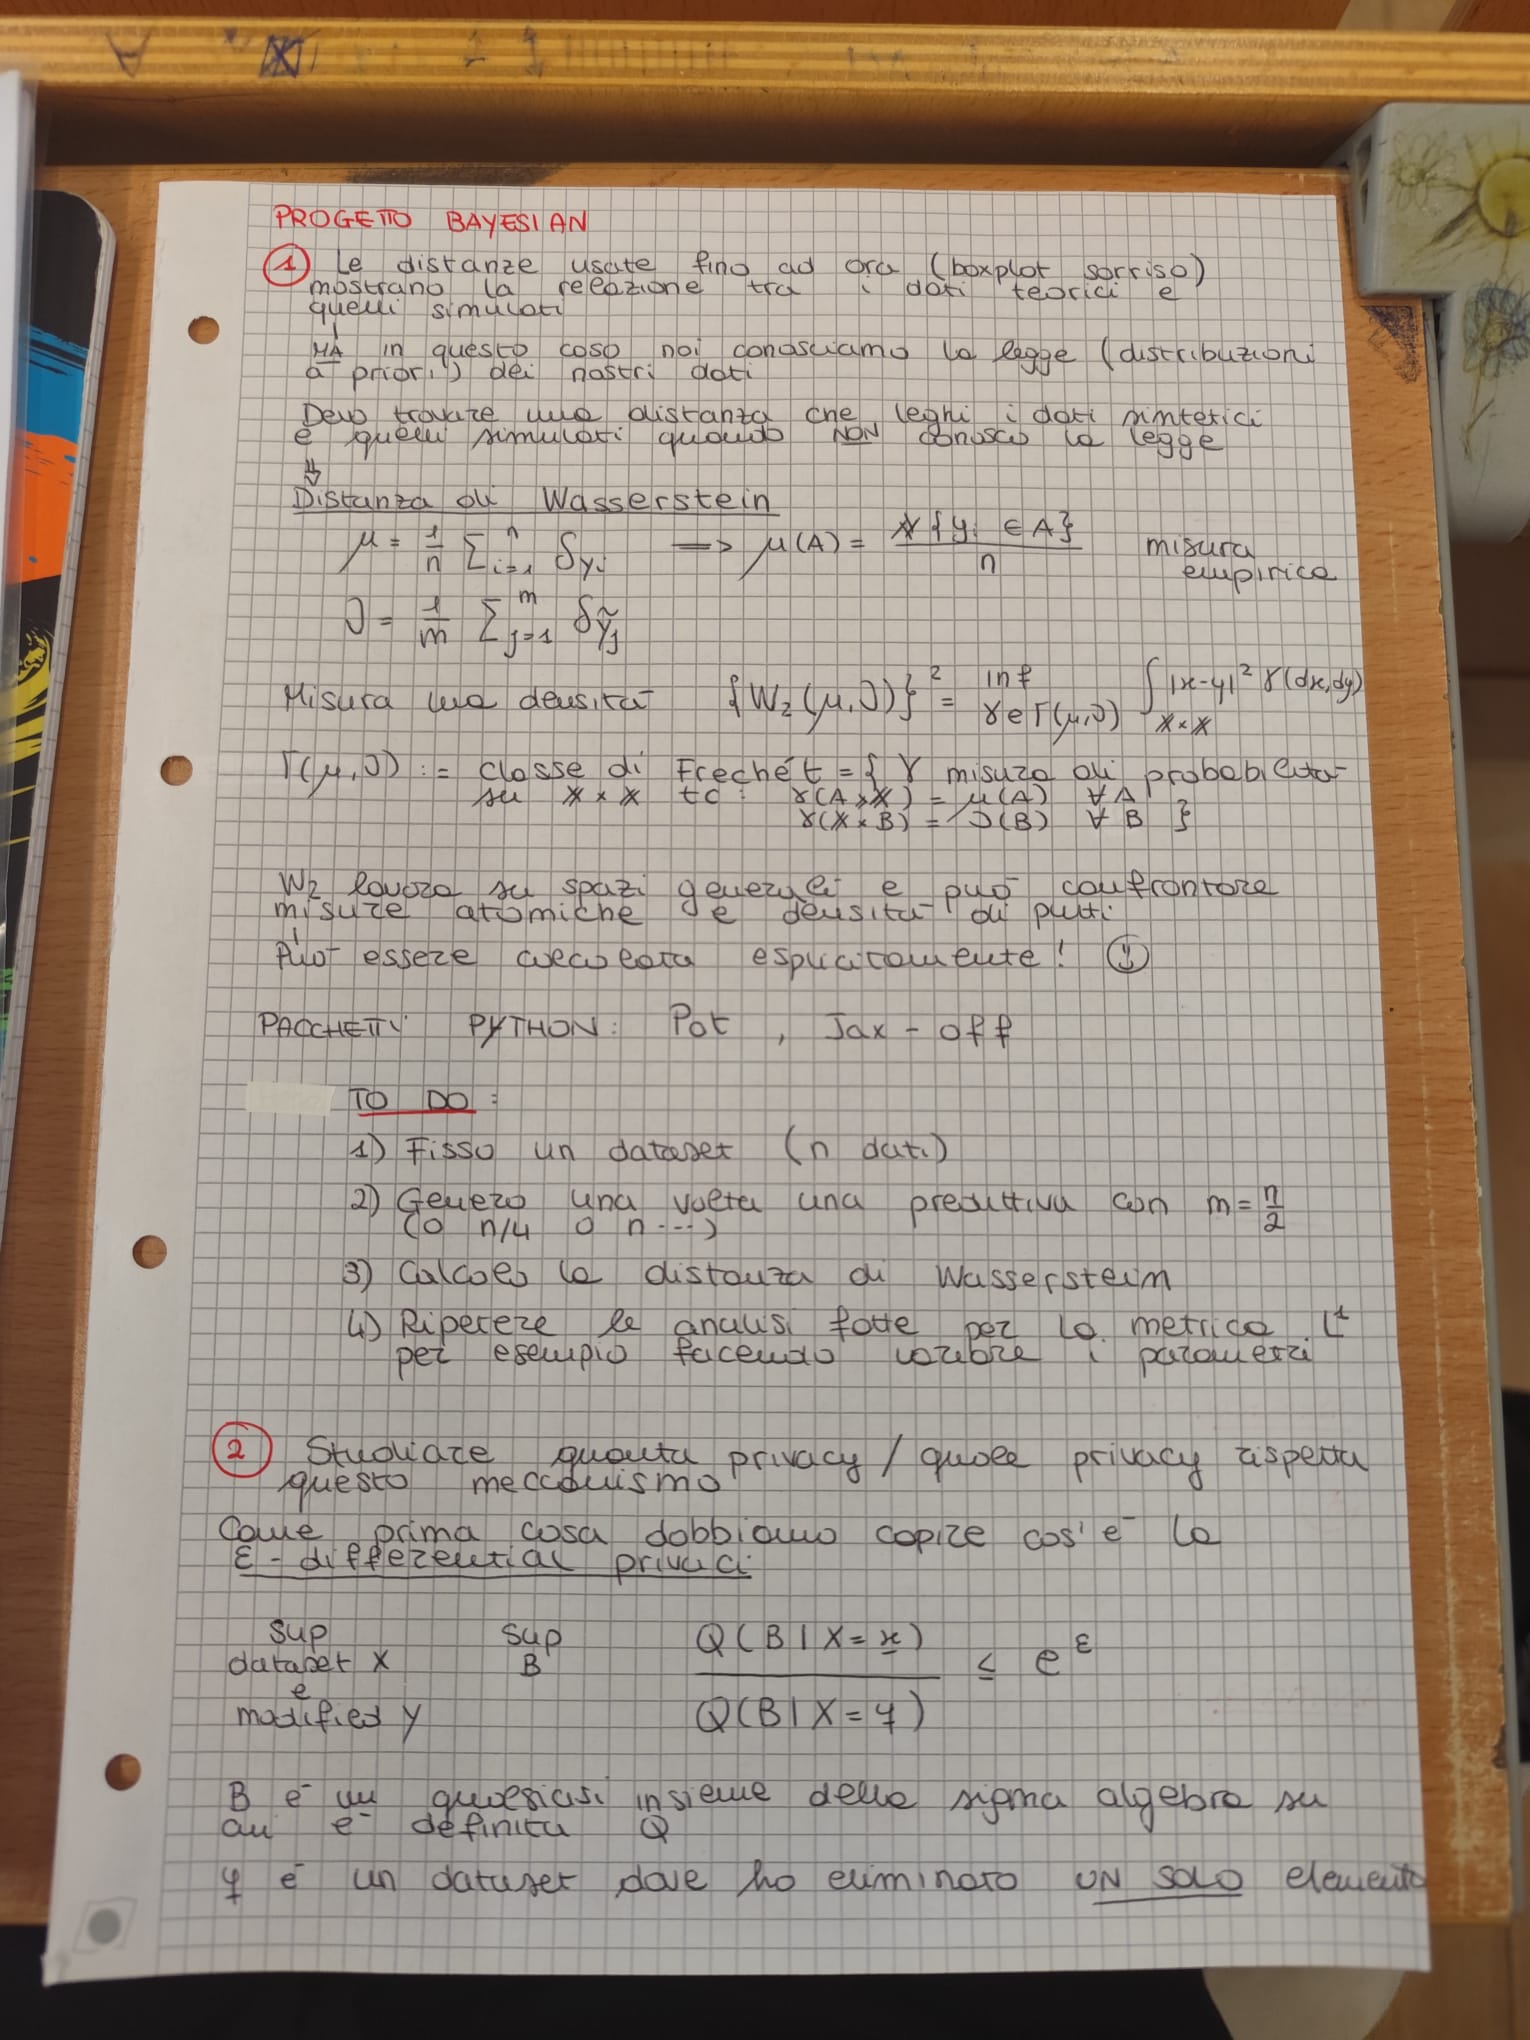 PROGETTO BAYESIAN
① Le distanze usate fino ad ora (boxplot sorriso)
mostrano la relazione tra i dati teorici e
quelli simulati
MA in questo caso noi conosciamo la legge (distribuzioni
a priori) dei nostri dati
Devo trovare una distanza che leghi i dati sintetici
e quelli simulati quando NON conosco la legge
⇓
Distanza di Wasserstein
μ = 1/n Σ_{i=1}^{n} δ_{yi} => μ(A) = #{yi ∈ A} / n misura
empirica
ν = 1/m Σ_{j=1}^{m} δ_{ỹj}
Misura una densità {W₂(μ,ν)}² = inf_{γ∈Γ(μ,ν)} ∫_{𝕏×𝕏} |x-y|² γ(dx,dy)
Γ(μ,ν) := classe di Frechét = { γ misura di probabilità
su 𝕏×𝕏 tc: γ(A×𝕏) = μ(A) ∀A
γ(𝕏×B) = ν(B) ∀B }
W₂ lavora su spazi generali e può confrontare
misure atomiche e densità di plutti
Può essere calcolata esplicitamente! ☺
PACCHETTI PYTHON: Pot, Jax-off
TO DO:
1) Fisso un dataset (n dati)
2) Genero una volta una predittiva con m = n/2
(o n/4 o n ...)
3) Calcolo la distanza di Wasserstein
4) Ripetere le analisi fatte per la metrica L¹
per esempio facendo variare i parametri
② Studiare quanta privacy / quale privacy rispetta
questo meccanismo
Come prima cosa dobbiamo capire cos'è la
ε-differential privaci
sup sup Q(B | X = x) / Q(B | X = y) ≤ e^ε
dataset X B
e
modified y
B è un qualsiasi insieme della sigma algebra su
cui è definita Q
y è un dataset dove ho eliminato UN SOLO elemento